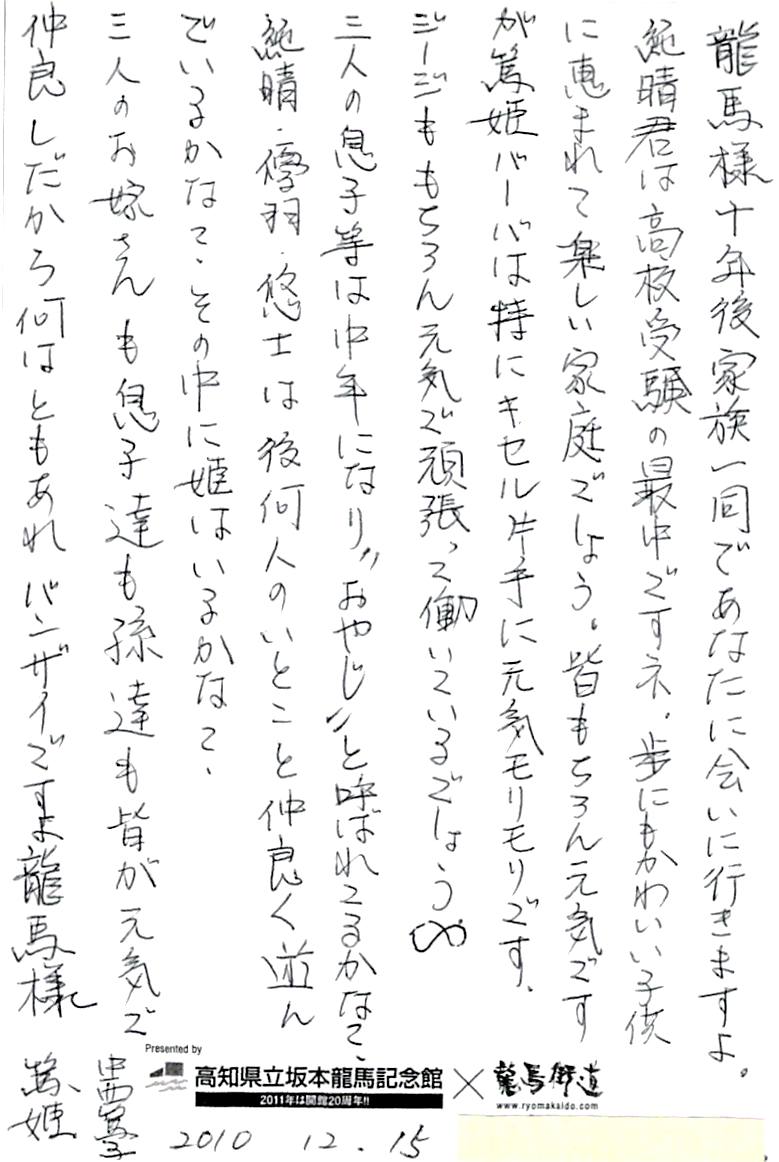 龍馬様十年後家族一同であなたに会いに行きますよ。
絁晴君は高校受験の最中ですネ。歩にもかわいい子供
に恵まれて楽しい家庭でしょう。皆もちろん元気です
が篤姫バーバは特にキセル片手に元気モリモリです。
ジージももちろん元気で頑張って働いているでしょう
三人の息子等は中年になり〝おやじ〟と呼ばれてるかなて、
絁晴・優羽・悠士は後何人のいとこと仲良く遊ん
でいるかなて、その中に姫はいるかなて、
三人のお嫁さんも息子達も孫達も皆が元気で
仲良しだから何はともあれバンザイですよ龍馬様
篤姫
2010 12.15
Presented by
高知県立坂本龍馬記念館 × 龍馬街道
2011年は開館20周年!!
www.ryomakaido.com